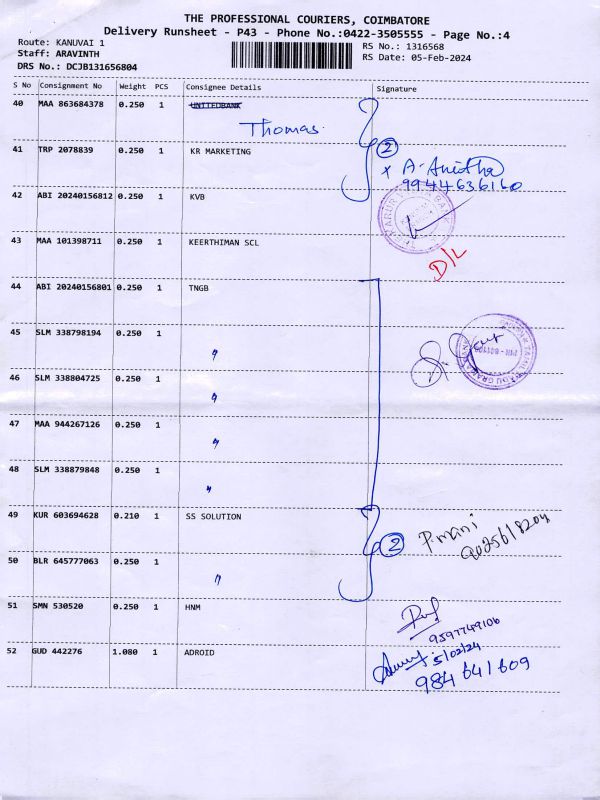 THE PROFESSIONAL COURIERS, COIMBATORE
Delivery Runsheet - P43 - Phone No.:0422-3505555 - Page No.:4
Route: KANUVAI 1
Staff: ARAVINTH
DRS No.: DCJB131656804
RS No.: 1316568
RS Date: 05-Feb-2024
S No Consignment No Weight PCS Consignee Details Signature
40 MAA 863684378 0.250 1 UNITEDBANK
Thomas
41 TRP 2078839 0.250 1 KR MARKETING
2
x A. Anitha
9944636160
42 ABI 20240156812 0.250 1 KVB
43 MAA 101398711 0.250 1 KEERTHIMAN SCL
D/L
44 ABI 20240156801 0.250 1 TNGB
45 SLM 338798194 0.250 1 "
46 SLM 338804725 0.250 1 "
47 MAA 944267126 0.250 1 "
48 SLM 338879848 0.250 1 "
49 KUR 603694628 0.210 1 SS SOLUTION
2 P.mani
50 BLR 645777063 0.250 1 "
51 SMN 530520 0.250 1 HNM
9597749106
52 GUD 442276 1.080 1 ADROID
5/02/24
984 641609